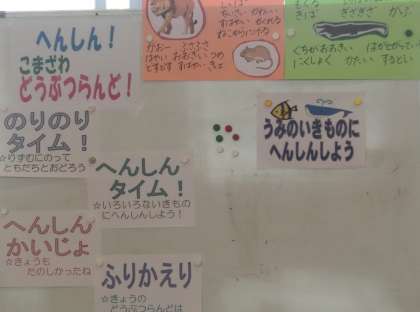 へんしん！
こまざわ
どうぶつらんど！
のりのり
タイム！
☆りずむにのって
ともだちとおどろう
へんしん
タイム！
☆いろいろないきもの
にへんしんしよう！
へんしん
かいじょ
☆きょうも
たのしかったね
ふりかえり
☆きょうの
どうぶつらんどは
がおー
はやい おおきい つめ
ちいさい かわいい
すばやい かくれる
ぎざぎざ
くちがおおきい
にくしょく かたい するどい
うみのいきものに
へんしんしよう